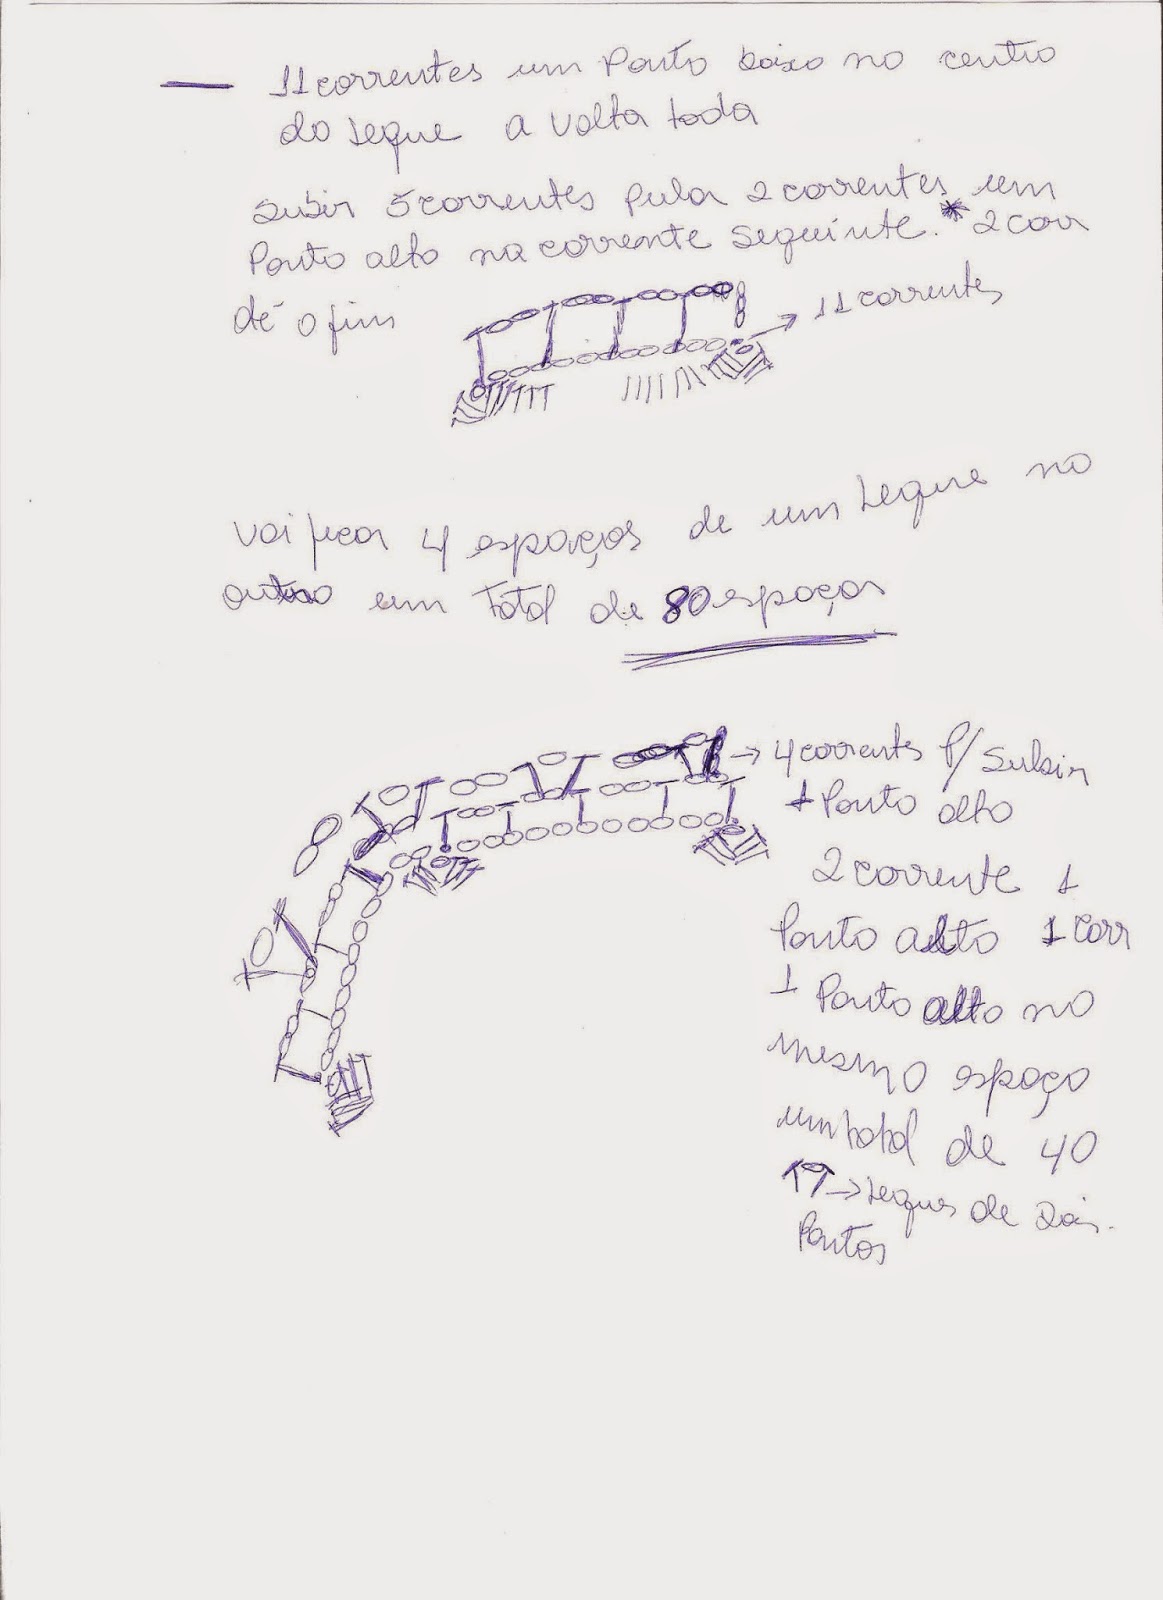 — 11 correntes um Ponto baixo no centro
do leque a volta toda
Subir 5 correntes Pula 2 correntes um
Ponto alto na corrente seguinte. * 2 corr
até o fim
→ 11 correntes
Vai ficar 4 espaços de um leque no
outro um total de 80 espaços
→ 4 correntes P/ Subir
1 Ponto alto
2 corrente 1
Ponto alto 1 corr
1 Ponto alto no
mesmo espaço
um total de 40
→ leques de dois
Pontos